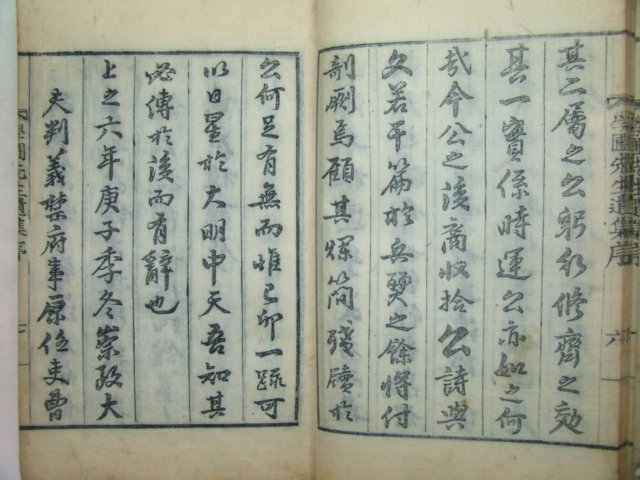 學圃先生遺集序 六
其二屬之公躬行修齊之效
其一實係時運公亦如之何
哉今公之後裔收拾公詩與
文若干篇於兵燹之餘將付
剞劂焉顧其爛簡殘牘於
公何足有無而惟己卯一疏可
以日星於大明中天吾知其
必傳於後而有辭也
上之六年庚子季冬崇政大
夫判義禁府事原任吏曹
學圃先生遺集序